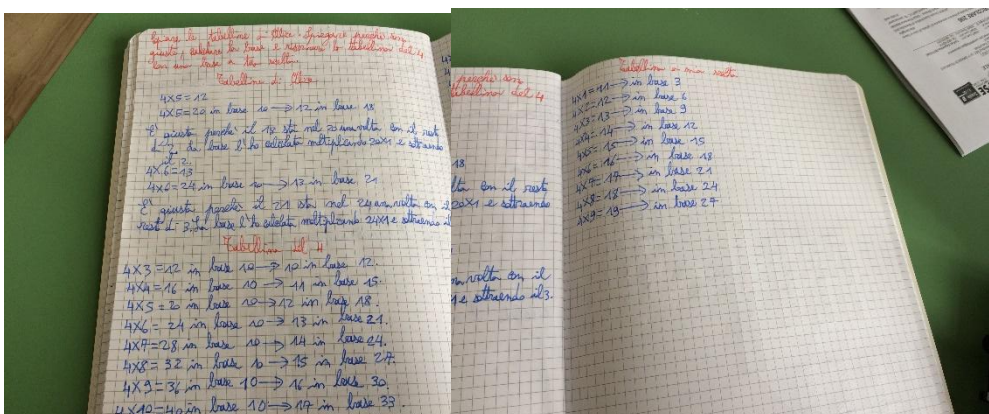 Spiegare perché son
giuste, calcolare la base e riscrivere la tabellina del 4
con una base a tua scelta.
Tabelline di Alice
4x5=12
4x5=20 in base 10 → 12 in base 18
E' giusto perché il 18 sta nel 20 una volta con il resto
di 2. La base l'ho calcolata moltiplicando 20x1 e sottraendo
il 2.
4x6=13
4x6=24 in base 10 → 13 in base 21
E' giusto perché il 21 sta nel 24 una volta con il
resto di 3. La base l'ho calcolata moltiplicando 24x1 e sottraendo il
Tabellina del 4
4x3=12 in base 10 → 10 in base 12.
4x4=16 in base 10 → 11 in base 15.
4x5=20 in base 10 → 12 in base 18.
4x6=24 in base 10 → 13 in base 21.
4x7=28 in base 10 → 14 in base 24.
4x8=32 in base 10 → 15 in base 27.
4x9=36 in base 10 → 16 in base 30.
4x10=40 in base 10 → 17 in base 33.
perché son
tabellina del 4
18.
volta con il resto
20x1 e sottraendo
una volta con il
e sottraendo il 3.
Tabellina a mia scelta
4x1=11 → in base 3
4x2=12 → in base 6
4x3=13 → in base 9
4x4=14 → in base 12
4x5=15 → in base 15
4x6=16 → in base 18
4x7=17 → in base 21
4x8=18 → in base 24
4x9=19 → in base 27